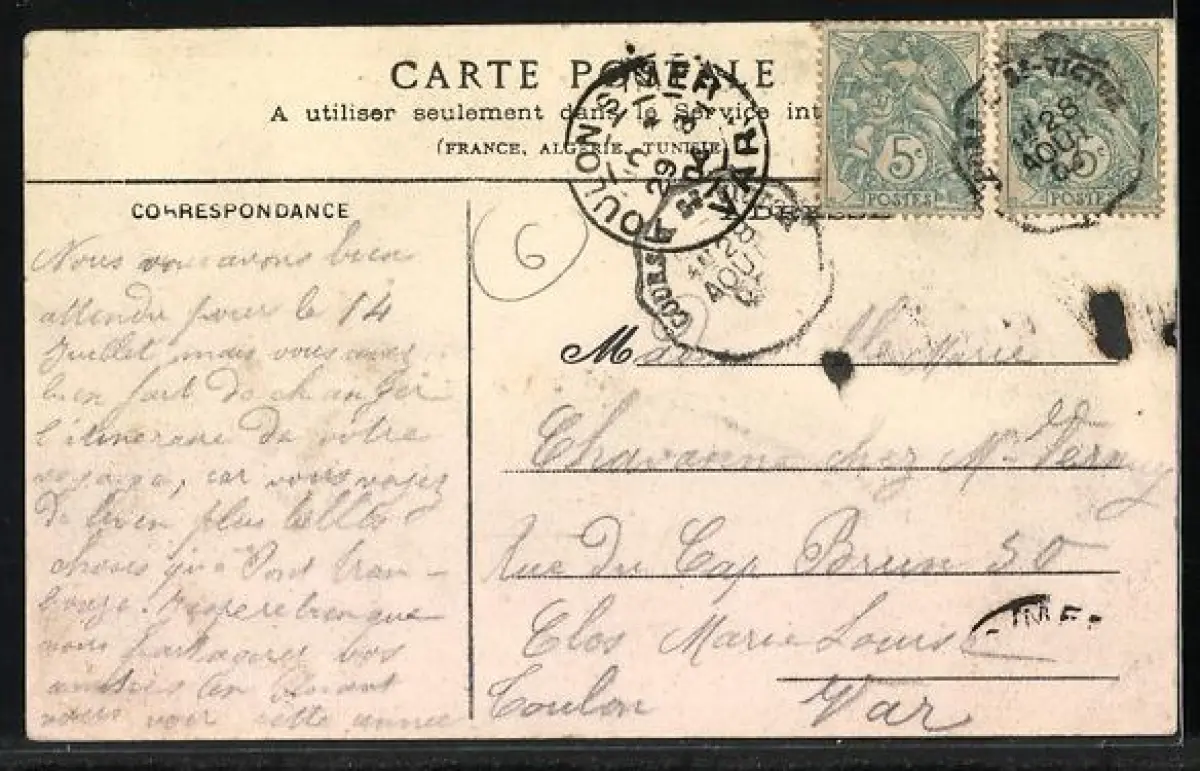 CARTE POSTALE
A utiliser seulement dans le Service int
(FRANCE, ALGÉRIE, TUNISIE)
TOULON S MER
VAR
29
5c
POSTES
5c
POSTES
ST-VICTOR
28
AOUT
COURS
28
AOUT
CORRESPONDANCE
6
Nous vous avons bien
attendu pour le 14
Juillet mais vous avez
bien fait de changer
l'itineraire de votre
voyage, car vous voyez
de bien plus belles
choses qu'à Pont tram-
bouze. J'espere bien que
vous partagerez vos
en venant
nous voir cette année
M Marie
Chavanne chez Mr
Rue du Cap Brun 50
Clos Marie Louise
Toulon Var